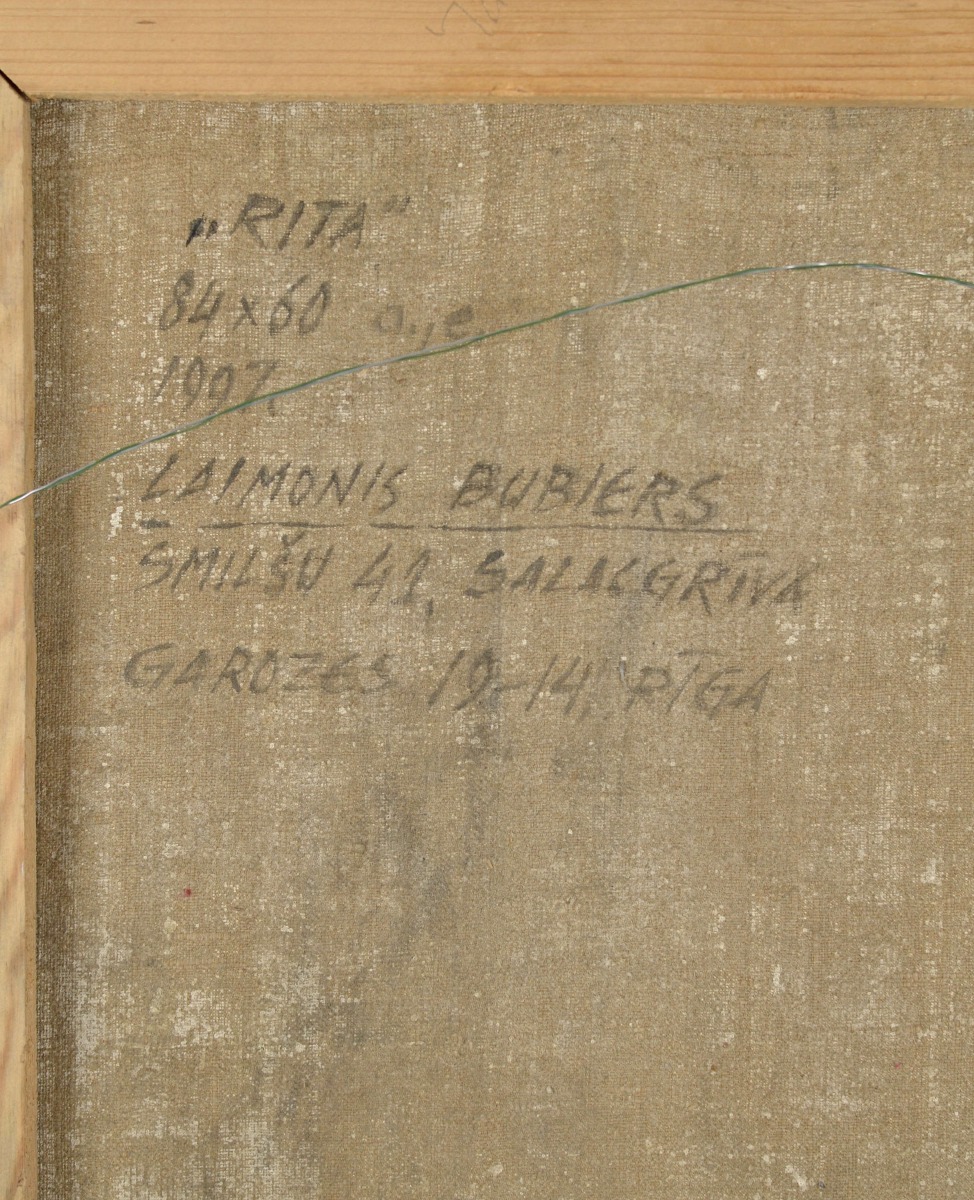 „RITA"
84x60 a.,e.
1997.
LAIMONIS BUBIERS
SMILŠU 41, SALACGRĪVA
GAROZES 19-14, RĪGA